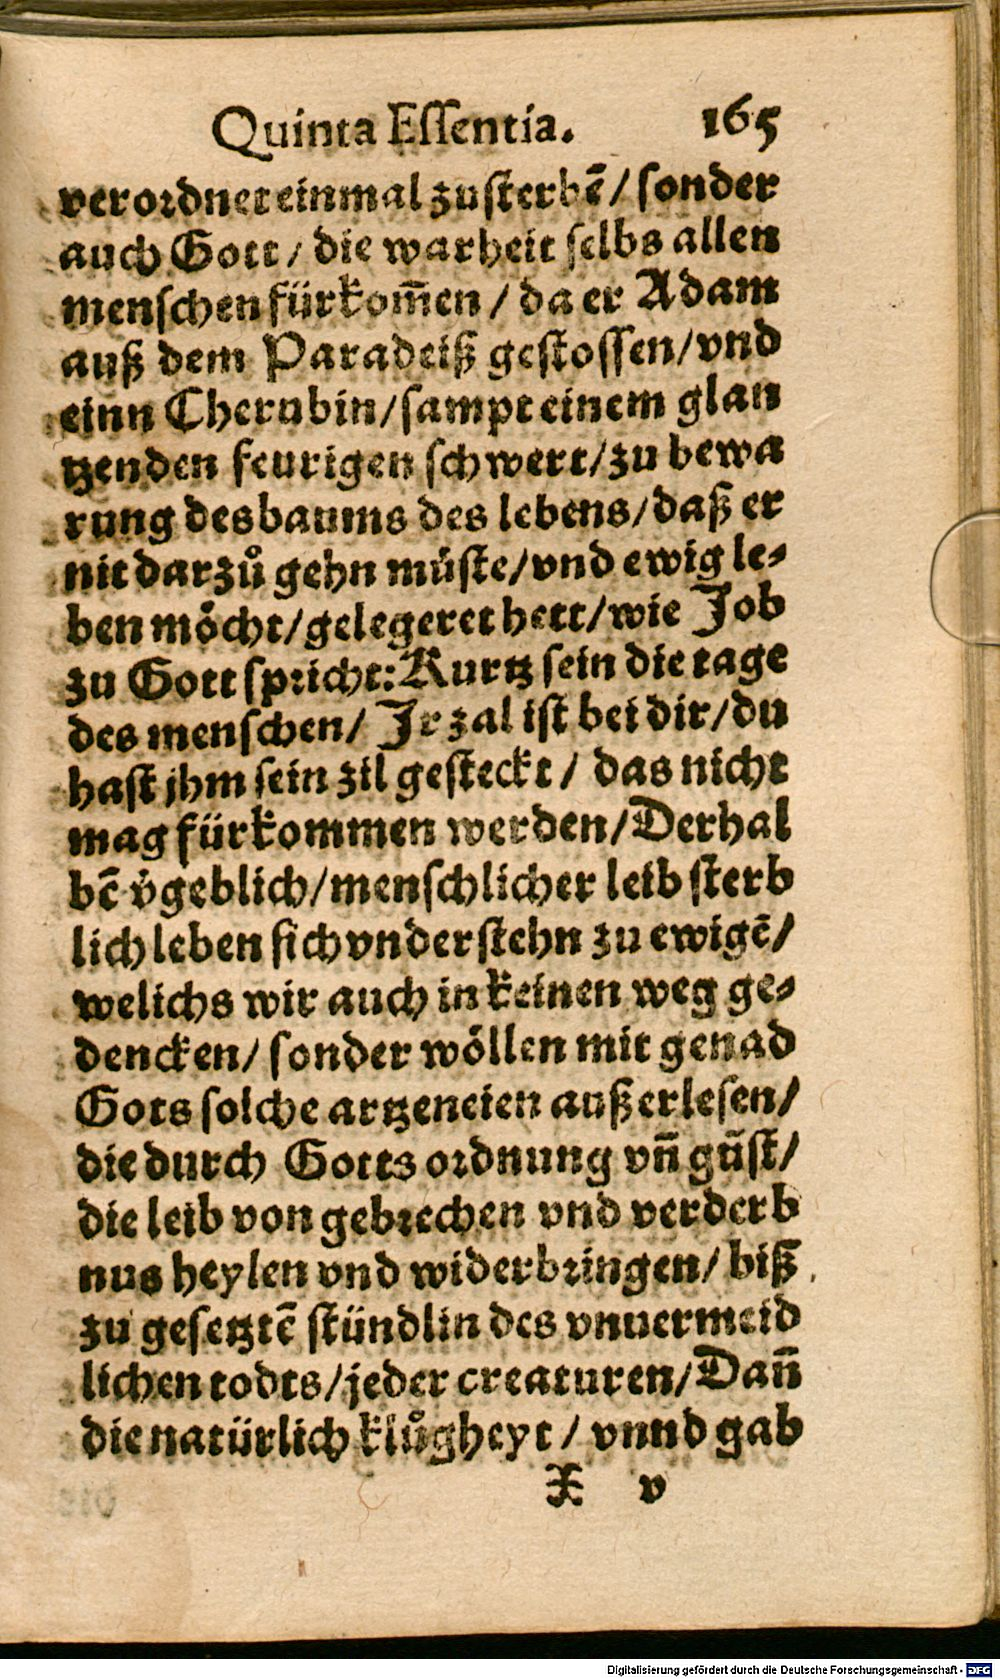 Quinta Eſſentia. 165
verordnet einmal zu ſterbẽ / ſonder
auch Gott / die warheit ſelbs allen
menſchen fürkom̃en / da er Adam
auß dem Paradeiß geſtoſſen / vnd
einn Cherubin / ſampt einem glan
tzenden feurigen ſchwert / zu bewa
rung des baums des lebens / daß er
nit darzů gehn müſte / vnd ewig le⸗
ben möcht / gelegeret hett / wie Job
zu Gott ſpricht: Kurtz ſein die tage
des menſchen / Jr zal iſt bei dir / du
haſt jhm ſein zil geſteckt / das nicht
mag fürkommen werden / Derhal
bẽ v̈geblich / menſchlicher leib ſterb
lich leben ſich vnderſtehn zu ewigẽ /
welichs wir auch in keinen weg ge⸗
dencken / ſonder wöllen mit genad
Gots ſolche artzeneien außerleſen /
die durch Gotts ordnung vñ gũſt /
die leib von gebrechen vnd verderb
nus heylen vnd widerbringen / biß
zu geſetztẽ ſtündlin des vnuermeid
lichen todts / jeder creaturen / Dañ
die natürlich klůgheyt / vnnd gab
X v
Digitalisierung gefördert durch die Deutsche Forschungsgemeinschaft - DFG